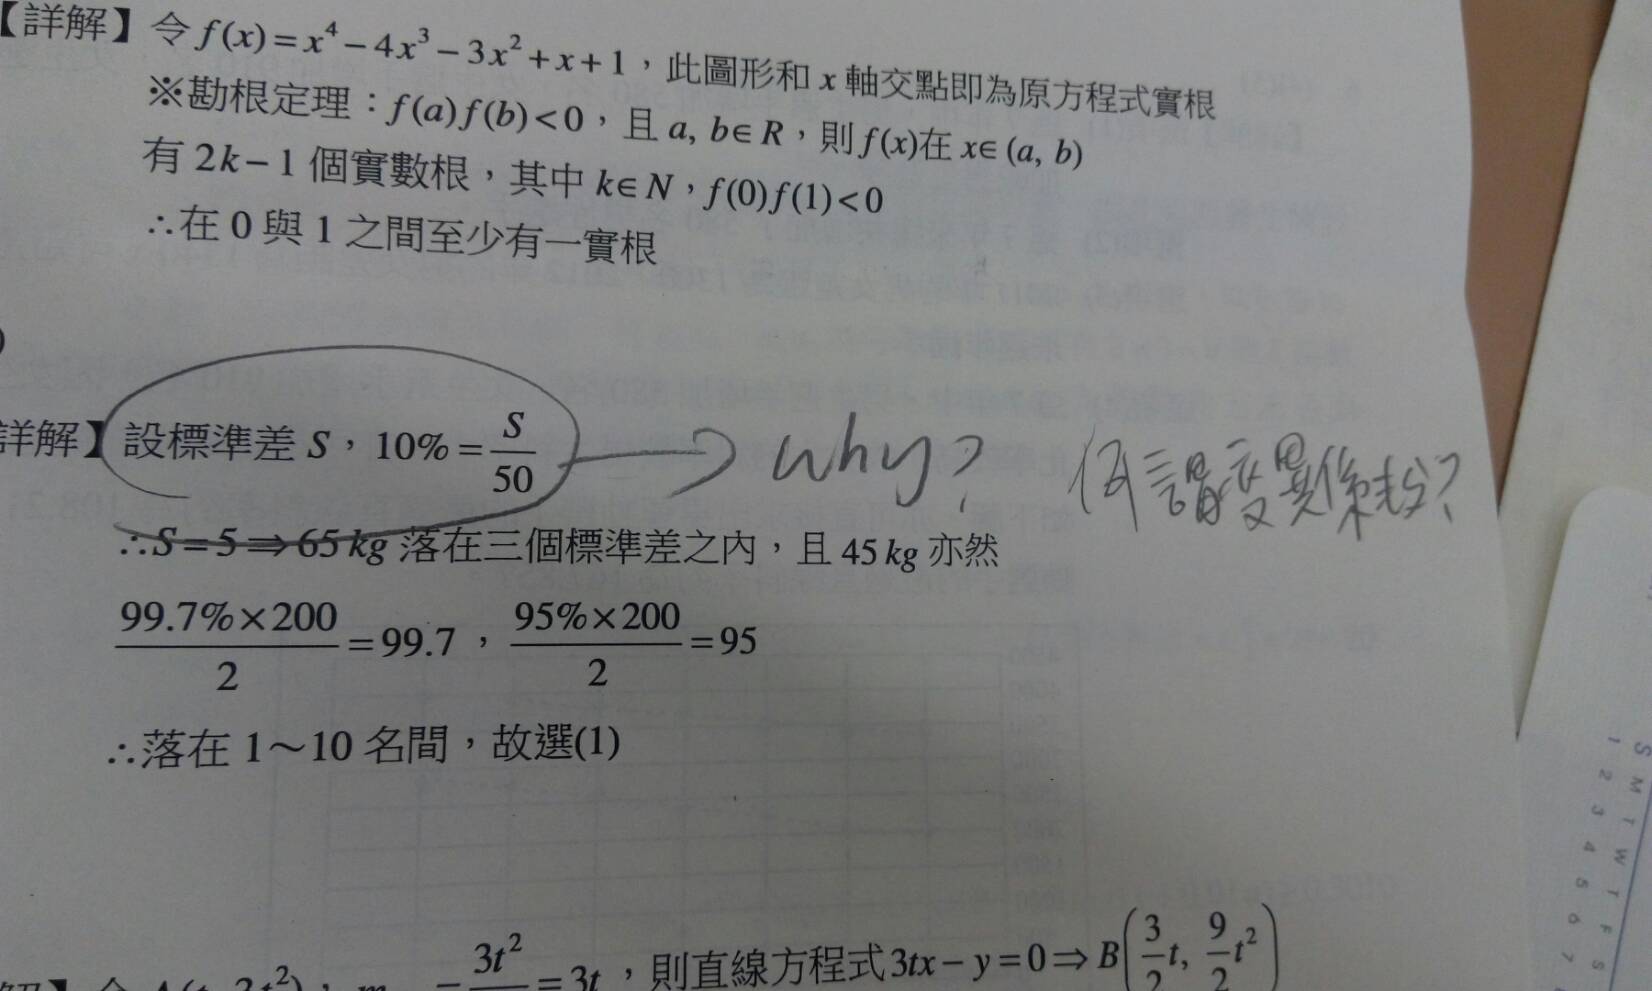 【詳解】令 f(x)=x⁴−4x³−3x²+x+1，此圖形和 x 軸交點即為原方程式實根
※勘根定理：f(a)f(b)<0，且 a, b∈R，則 f(x)在 x∈(a, b)
有 2k−1 個實數根，其中 k∈N，f(0)f(1)<0
∴在 0 與 1 之間至少有一實根
詳解】設標準差 S，10%=S/50 → why? 何謂變異係數?
∴S=5⇒65 kg 落在三個標準差之內，且 45 kg 亦然
99.7%×200/2=99.7，95%×200/2=95
∴落在 1～10 名間，故選(1)
3t²/ =3t，則直線方程式 3tx−y=0⇒B(3/2 t, 9/2 t²)
S M T W T F S
1 2 3 4 5 6 7